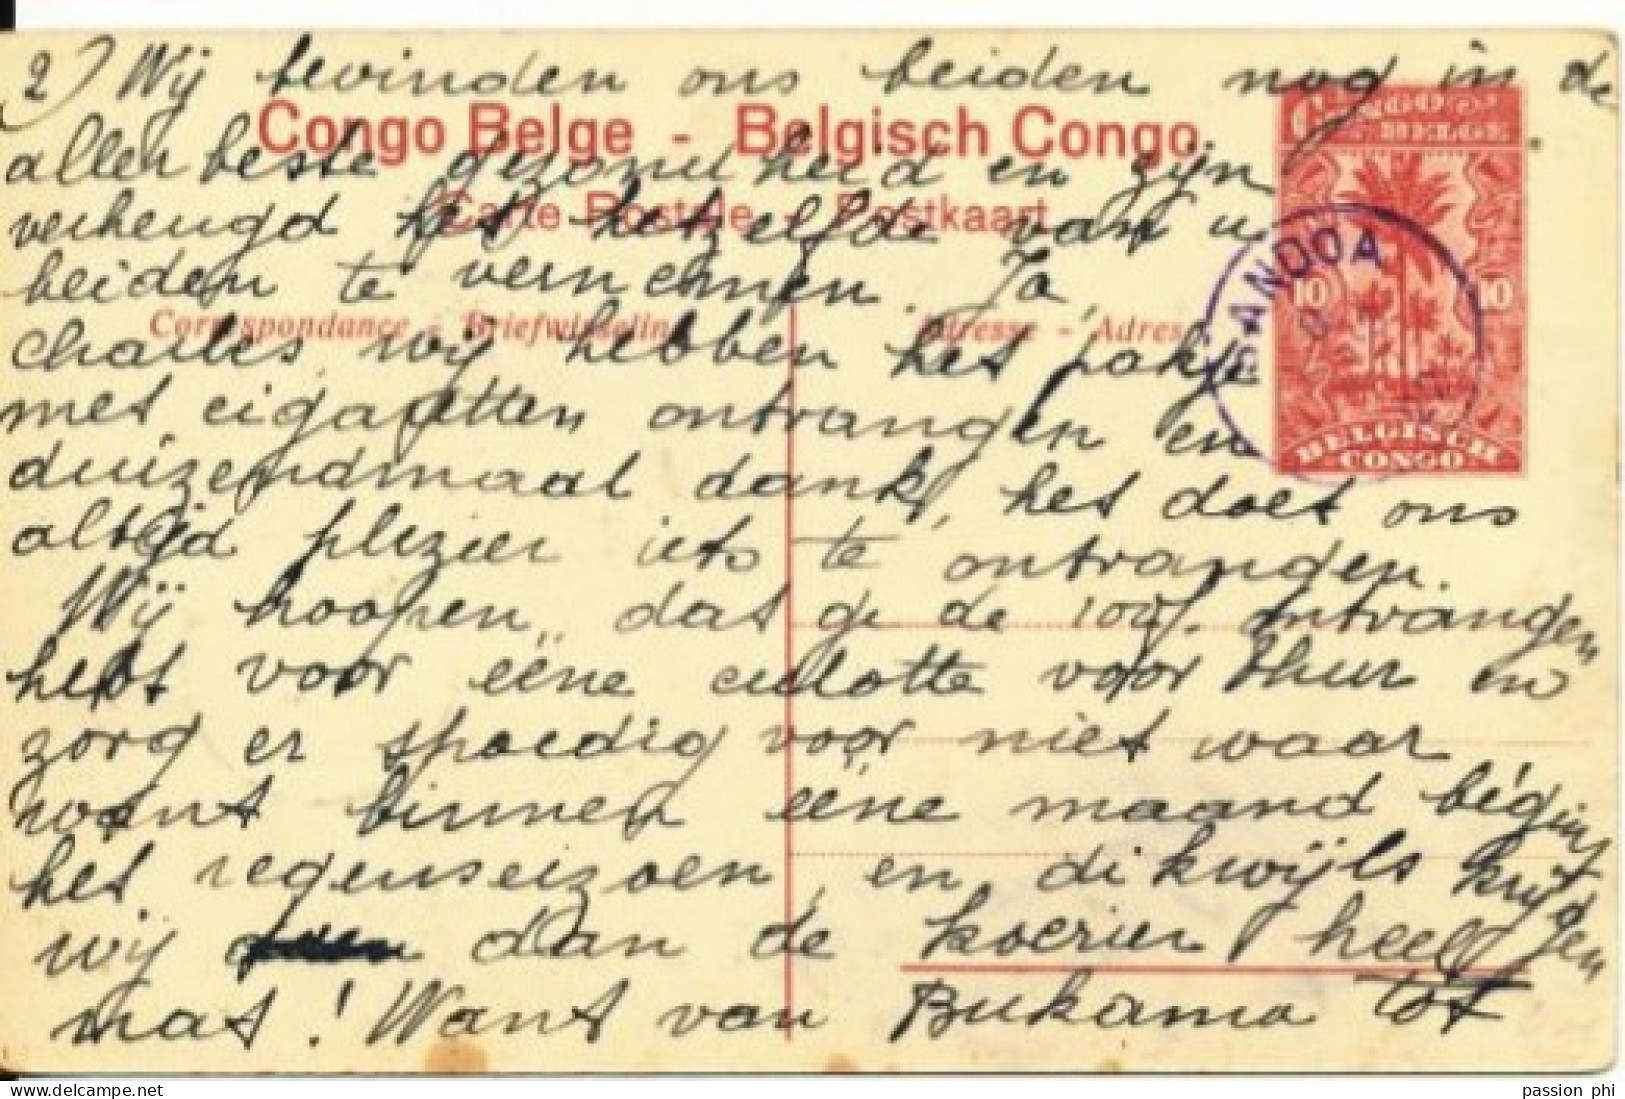 2) Wij bevinden ons beiden nog in de
Congo Belge - Belgisch Congo
aller beste gezondheid en zijn
Carte Postale - Postkaart
verheugd het hetzelfde van u
beiden te vernemen. Ja,
Correspondance - Briefwisseling
Adresse - Adres
Charles, wij hebben het pakje
met cigaretten ontvangen en
duizendmaal dank, het doet ons
altijd plezier iets te ontvangen.
Wij hoopen dat ge de 100f. ontvangen
hebt voor ééne culotte voor Thur en
zorg er spoedig voor niet waar
want binnen ééne maand begint
het regenseizoen, en dikwijls krijgen
wij dan de koerier heel
nat! Want van Bukama tot
CONGO BELGE
10 10
BELGISCH
CONGO
SANDOA
passion phi